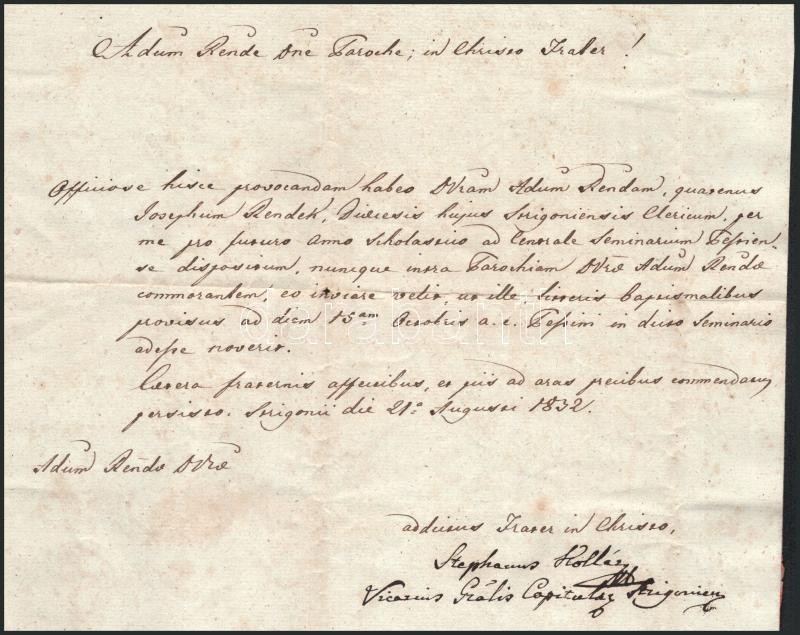 Adum Rende Dne Paroche; in Christo Frater!
Officiose hisce provocandam habeo DVram Adum Rendam, quatenus
Josephum Rendek, Diœcesis hujus Strigoniensis Clericum, per
me pro futuro anno scholastico ad Centrale Seminarium Pestien-
se dispositum, nunique intra Parochiam DVræ Adum Rendæ
commorantem, eo inviare velit, ut ille litteris Baptismalibus
provisus ad diem 15am Octobris a. c. Pestini in dicto Seminario
adesse noverit.
Cætera fraternis affectibus, et piis ad aras precibus commendatus
persisto. Strigonii die 21a Augusti 1832.
Adum Rendæ DVræ
addictus Frater in Christo,
Stephanus Kollár
Vicarius Gralis Capitular Strigonien
darabanth